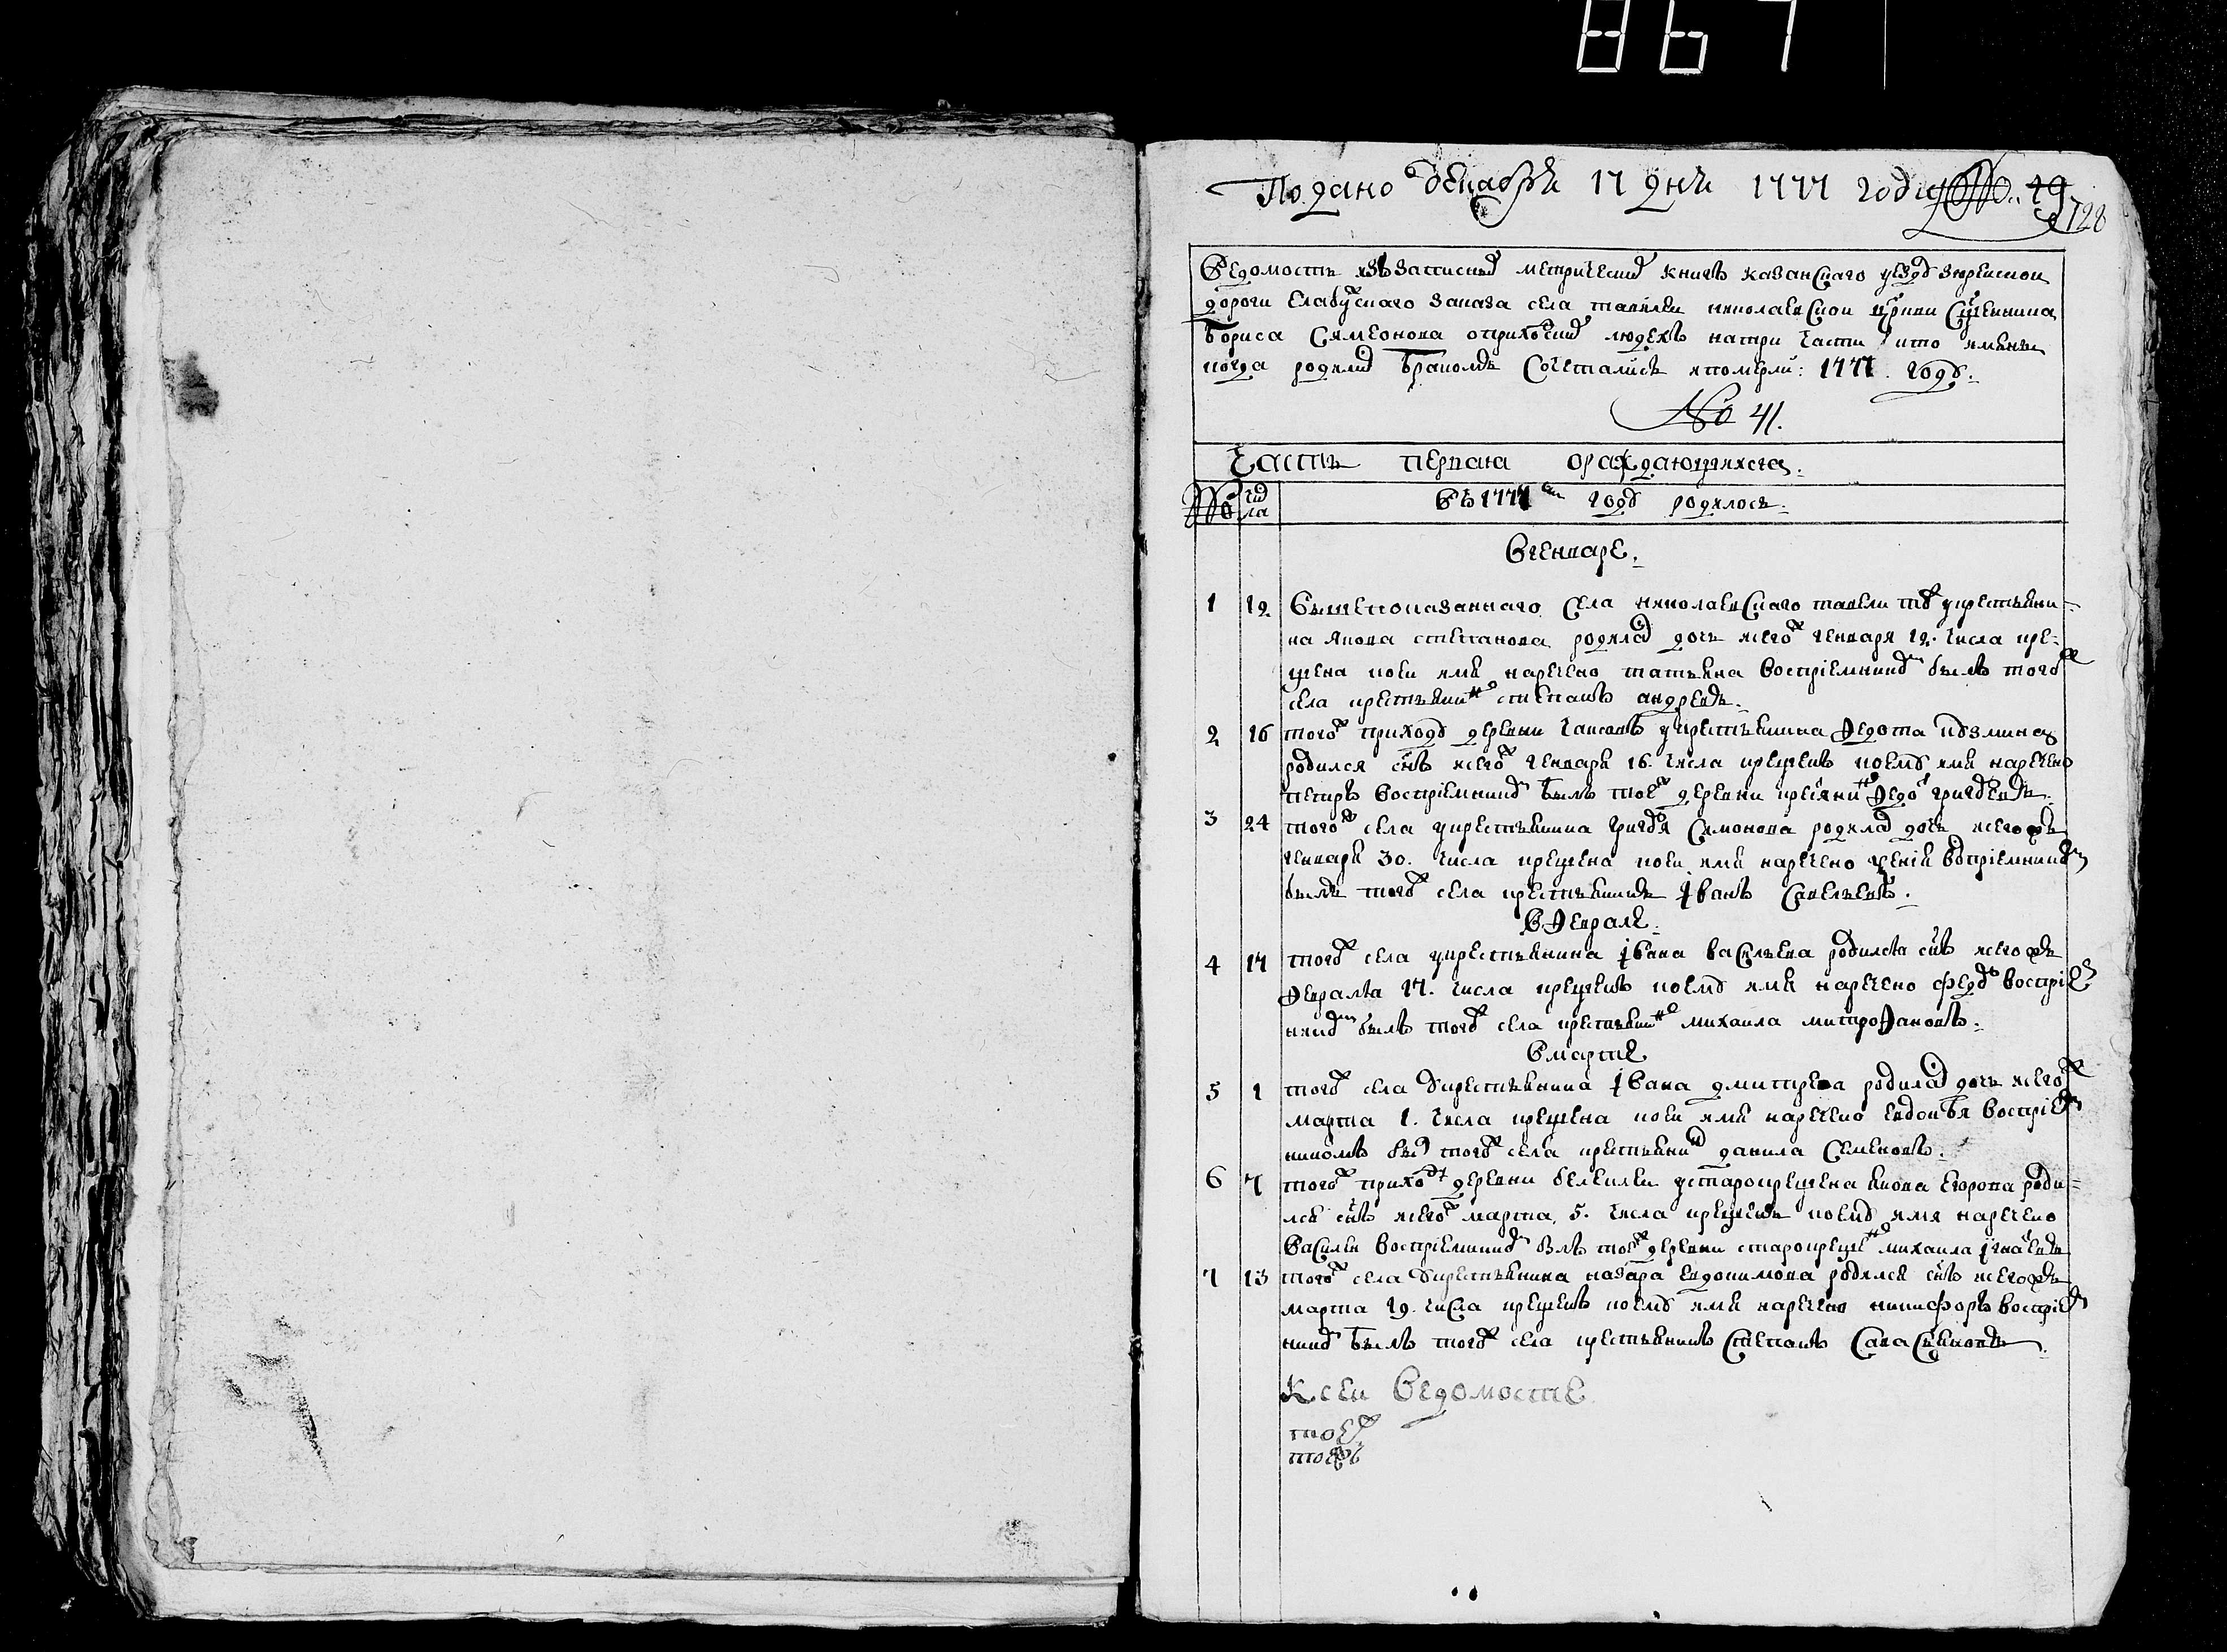 867
Подано декабря 17 дня 1777 году № 49
728
Ведомость изъ записныхъ метрическихъ книгъ казанскаго уезду зюрейской
дороги елабускаго заказа села николаевской церкви священника
Бориса Симеонова о приходскихъ людехъ на три части кто имяны
когда родились бракомъ сочетались и померли: 1777 году.
№ 41.
Часть первая о раждающихся.
№ числа Въ 1777 м году родилось.
Вгенваре.
1 12 Вышепоказаннаго села николаевскаго тоже у крестьяни=
на якова степанова родилась дочь и сегоже генваря 12. числа кре=
щена коей имя наречено татьяна восприемникомъ былъ тогоже
села крестьянинъ степанъ андреевъ.
2 16 тогоже приходу деревни у крестьянина федота кузмина
родился сынъ и сегоже генваря 16. числа крещенъ коему имя наречено
петръ восприемникомъ былъ тоеже деревни крестьянинъ федоръ григорьевъ.
3 24 тогоже села у крестьянина григорья симонова родилась дочь и сегожъ
генваря 30. числа крещена коей имя наречено восприемникомъ
былъ тогоже села крестьянинъ іванъ савельевъ.
в феврале.
4 17 тогоже села у крестьянина івана васильева родился сынъ и сегожъ
февраля 17. числа крещенъ коему имя наречено федоръ восприем
никомъ былъ тогоже села крестьянинъ михаила митрофановъ.
в марте
5 1 тогоже села у крестьянина івана дмитрева родилась дочь и сегоже
марта 1. числа крещена коей имя наречено евдокья восприем
никомъ былъ тогоже села крестьянинъ данила семеновъ.
6 7 тогоже приходу деревни у старокрещена якова егорова роди=
лся сынъ и сегоже марта 5. числа крещенъ коему имя наречено
василей восприемникомъ былъ тоеже деревни старокрещенъ михаила ігнатьевъ
7 13 тогоже села у крестьянина назара евдокимова родился сынъ и сегожъ
марта 19. числа крещенъ коему имя наречено никифоръ восприем
никомъ былъ тогоже села крестьянинъ степанъ
К сей ведомости
тоеже